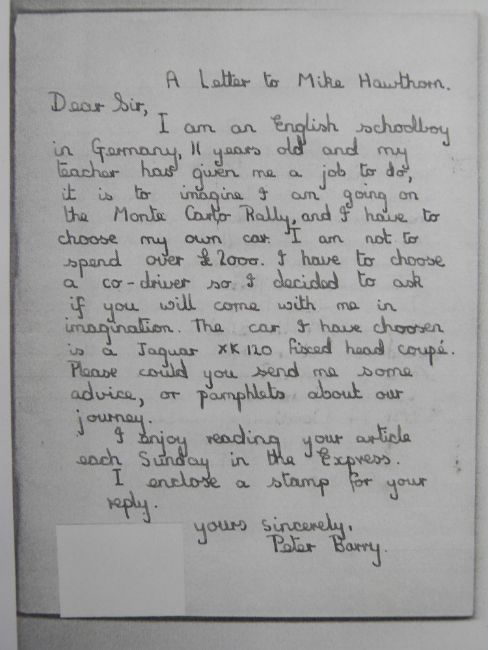 A Letter to Mike Hawthorn.
Dear Sir,
I am an English schoolboy
in Germany, 11 years old and my
teacher has given me a job to do,
it is to imagine I am going on
the Monte Carlo Rally, and I have to
choose my own car. I am not to
spend over £2000. I have to choose
a co-driver so I decided to ask
if you will come with me in
imagination. The car I have choosen
is a Jaguar XK 120 fixed head coupé.
Please could you send me some
advice, or pamphlets about our
journey.
I enjoy reading your article
each Sunday in the Express.
I enclose a stamp for your
reply.
yours sincerely,
Peter Barry.